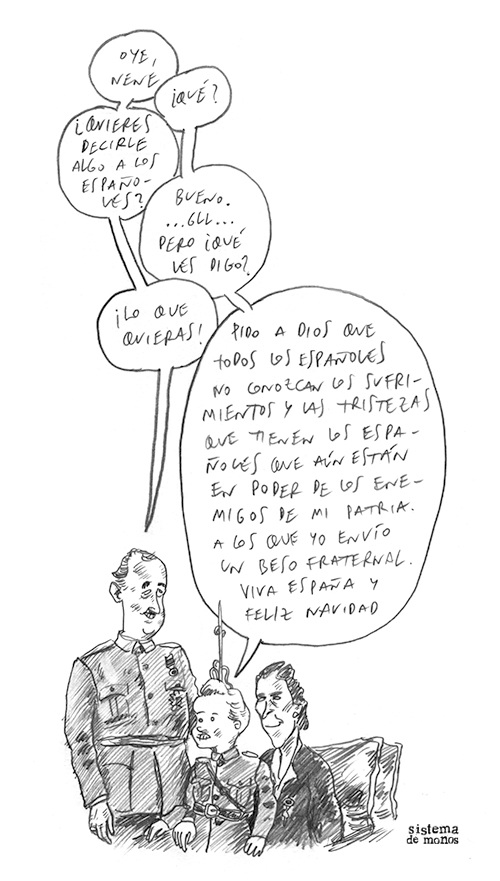 OYE,
NENE
¡QUÉ?
¡QUIERES
DECIRLE
ALGO A LOS
ESPAÑO-
LES?
BUENO.
...GLL...
PERO ¡QUÉ
LES DIGO?
¡LO QUE
QUIERAS!
PIDO A DIOS QUE
TODOS LOS ESPAÑOLES
NO CONOZCAN LOS SUFRI-
MIENTOS Y LAS TRISTEZAS
QUE TIENEN LOS ESPA-
ÑOLES QUE AÚN ESTÁN
EN PODER DE LOS ENE-
MIGOS DE MI PATRIA.
A LOS QUE YO ENVÍO
UN BESO FRATERNAL.
VIVA ESPAÑA Y
FELIZ NAVIDAD
sistema
de monos